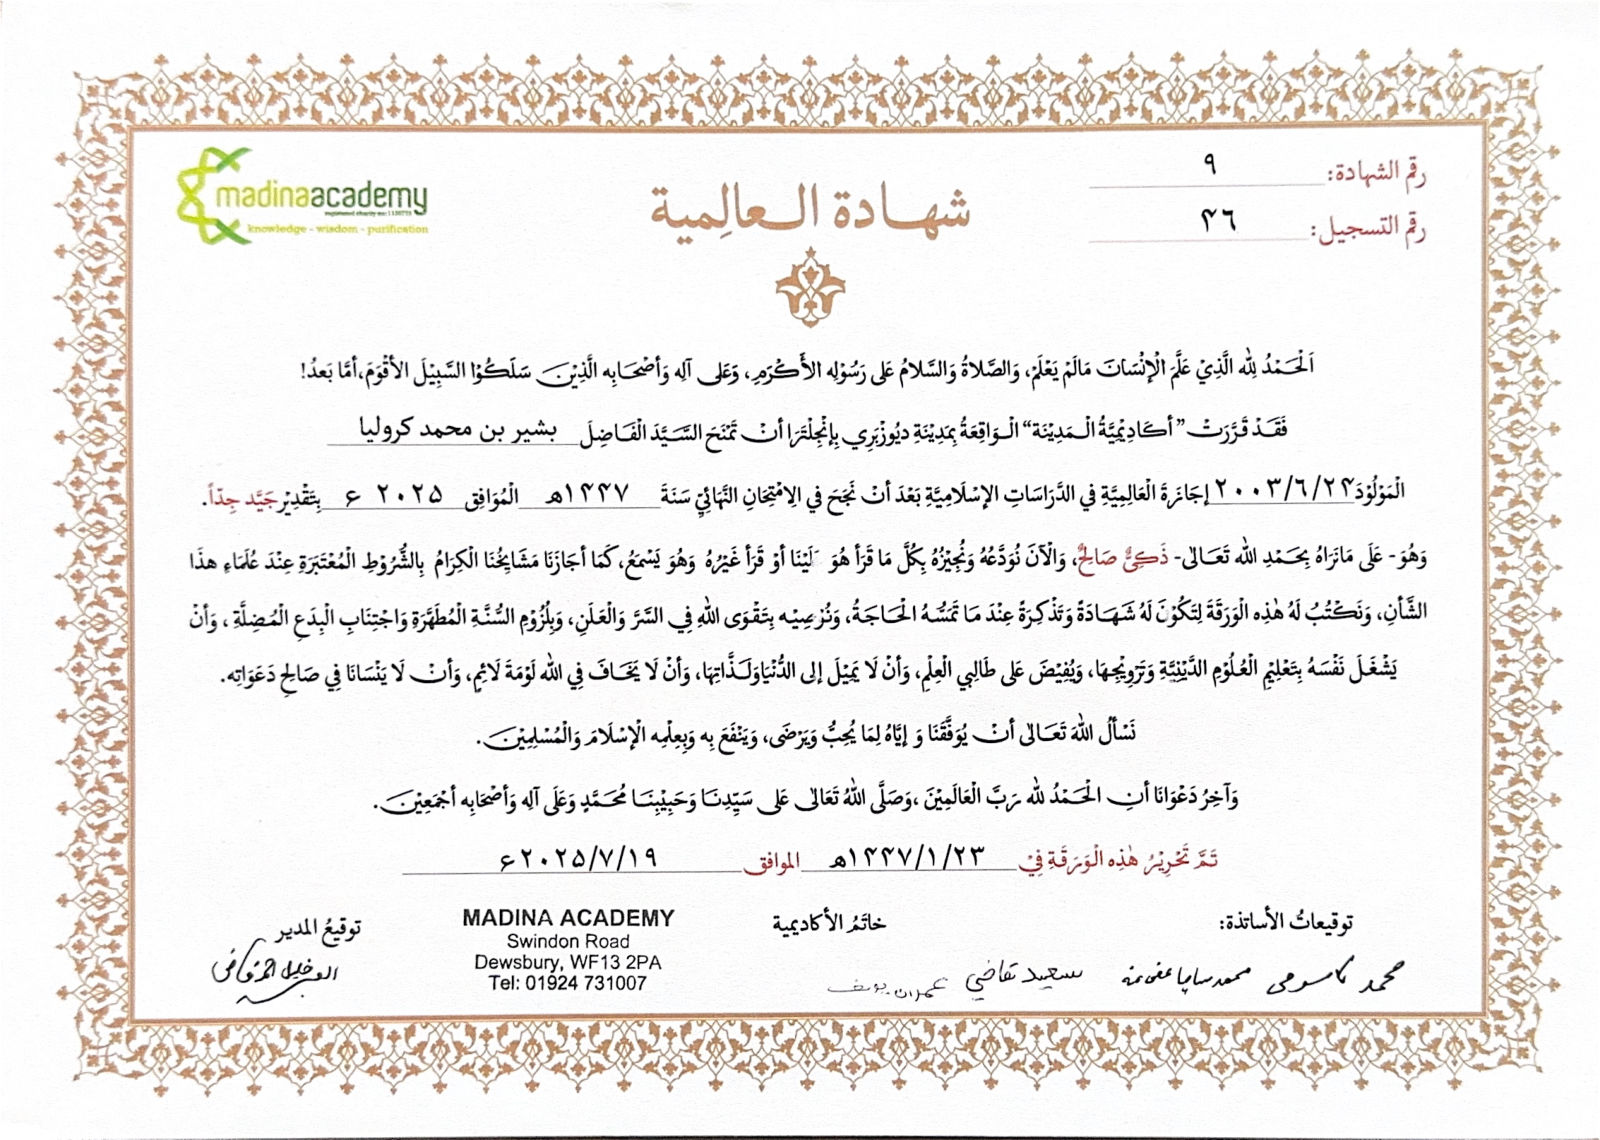 madinaacademy
registered charity no: 1130773
knowledge - wisdom - purification
شهادة العالِمية
رقم الشهادة: ٩
رقم التسجيل: ٤٦
اَلْحَمْدُ لِلّٰهِ الَّذِيْ عَلَّمَ الْإِنْسَانَ مَالَمْ يَعْلَمْ، وَالصَّلاةُ وَالسَّلامُ عَلى رَسُوْلِه الأَكْرَمِ، وَعَلى آلِه وَأَصْحَابِه الَّذِيْنَ سَلَكُوْا السَّبِيْلَ الأَقْوَمَ، أمَّا بَعدُ!
فَقَدْ قَرَّرَتْ ”أكَادِيْمِيَّةُ الْمَدِيْنَة“ الْوَاقِعَةُ بِمَدِيْنَةِ ديُوزْبَرِي بِإنْجِلْتَرَا أنْ تَمْنَحَ السَّيِّدَ الْفَاضِلَ بشير بن محمد كروليا
الْمَوْلُوْدَ ٢٠٠٣/٦/٢٤ إجَازَةَ الْعَالِمِيَّةِ في الدَّرَاسَاتِ الإسْلَامِيَّةِ بَعْدَ أنْ نَجَحَ في الاِمْتِحَانِ النَّهَائِيِّ سَنَةَ ١٤٤٧هـ الْمُوَافِقِ ٢٠٢٥ ء بِتَقْدِيْرِ جَيِّد جِدّاً.
وَهُوَ- عَلَى مَانَرَاهُ بِحَمْدِ اللّٰه تَعَالىٰ- ذَكِيٌّ صَالِحٌ، وَالْآنَ نُوَدِّعُهُ وَنُجِيْزُهُ بِكُلِّ مَا قَرَأ هُوَ لَيْنَا أوْ قَرَأ غَيْرُهُ وَهُوَ يَسْمَعُ، كَمَا أجَازَنَا مَشَايِخُنَا الْكِرَامُ بِالشُّرُوْطِ الْمُعْتَبَرَةِ عِنْدَ عُلَمَاءِ هذَا
الشَّأنِ، وَنَكْتُبُ لَهُ هٰذِه الْوَرَقَةَ لِتَكُوْنَ لَهُ شَهَادَةً وَتَذْكِرَةً عِنْدَ مَا تَمَسُّهُ الْحَاجَةُ، وَنُوْصِيْه بِتَقْوَى اللّٰهِ فِي السِّرِّ وَالْعَلَنِ، وَبِلُزُوْمِ السُّنَّةِ الْمُطَهَّرَةِ وَاجْتِنَابِ الْبِدَعِ الْمُضِلَّةِ، وَأنْ
يَشْغَلَ نَفْسَهُ بِتَعْلِيْمِ الْعُلُوْمِ الدِّيْنِيَّةِ وَتَرْوِيْجِهَا، وَيُفِيْضَ عَلى طَالِبِي الْعِلْمِ، وَأنْ لَا يَمِيْلَ إلى الدُّنْيَا وَلَذَّاتِهَا، وَأنْ لَا يَخَافَ فِي اللّٰه لَوْمَةَ لَائِمٍ، وَأنْ لَا يَنْسَانَا فِي صَالِح دَعَوَاتِه.
نَسْألُ اللّٰهَ تَعَالىٰ أنْ يُوَفِّقَنَا وَ إيَّاهُ لِمَا يُحِبُّ وَيَرْضَى، وَيَنْفَعَ بِه وَبِعِلْمِه الْإسْلَامَ وَالْمُسْلِمِيْنَ.
وَآخِرُ دَعْوَانَا أنِ الْحَمْدُ لله رَبِّ الْعَالَمِيْنَ، وَصَلَّى اللّٰهُ تَعَالىٰ عَلى سَيِّدِنَا وَحَبِيْبِنَا مُحَمَّدٍ وَعَلَى آلِه وَأصْحَابِه أجْمَعِيْنَ.
تَمَّ تَحْرِيْرُ هٰذِه الْوَرَقَةِ فِيْ ١٤٤٧/١/٢٣هـ الموافق ٢٠٢٥/٧/١٩ء
توقيعاتُ الأساتذة:
خاتَمُ الأكاديمية
MADINA ACADEMY
Swindon Road
Dewsbury, WF13 2PA
Tel: 01924 731007
توقيعُ المدير
محمد
سعيد قاضي
عمران يوسف